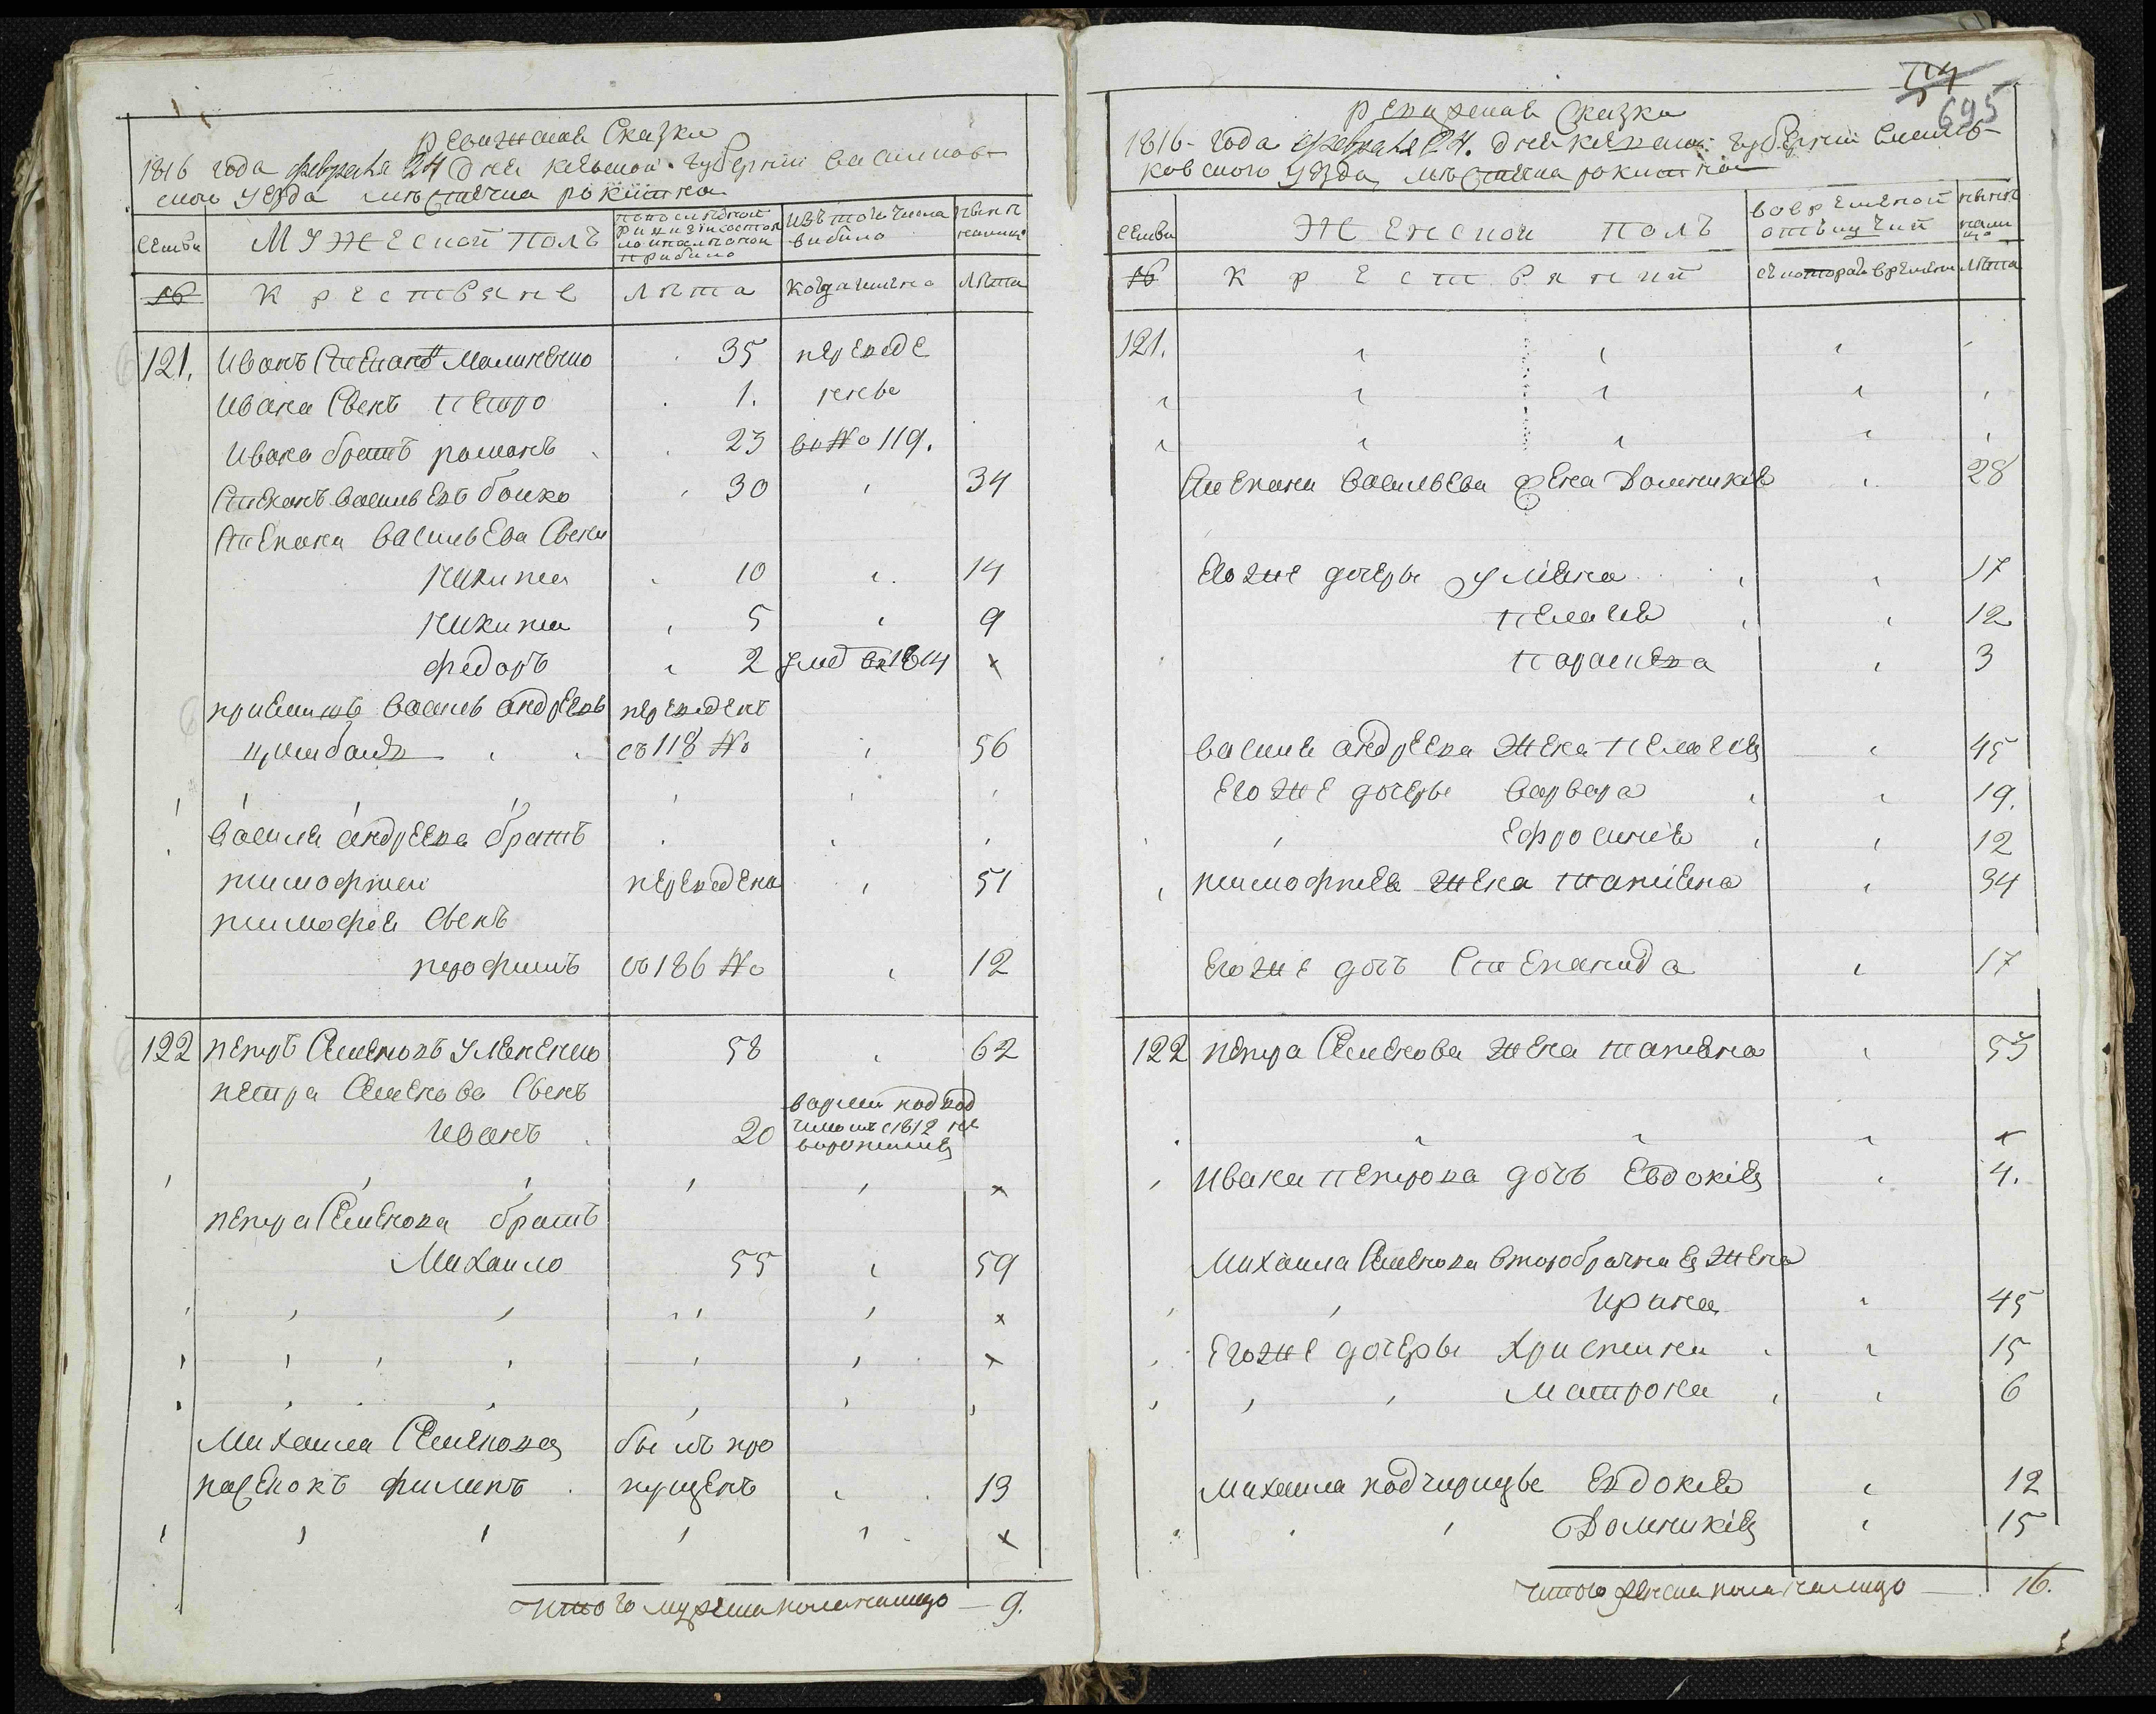 Ревижская Сказка
1816 года февраля 24 дня киевской губернии василков-
ского уезда мѣстечка рокитна
семьи
Мужеской полъ
по последней ревизии состояло и после оной прибыло
изъ того числа выбыло
ныне налицо
№
Крестьяне
лѣта
когда имено
лѣта
121. Иванъ Степановъ Малиненко 35 переведе
Ивана Сынъ петро 1. нены
Ивана братъ романъ 23 во № 119.
Степанъ васильевъ бойко 30 34
Степана васильева Сыны
Никита 10 14
Никита 5 9
федоръ 2 умер въ 1814 ×
приемышъ василь андреевъ переведенъ
съ 118 № 56
василя андреева братъ
тимофтей переведена 51
тимофея Сынъ
трофимъ съ 186 № 12
122 петръ Семеновъ Умененко 58 62
петра Семенова Сынъ
Иванъ 20
1812 не
×
петра Семенова братъ
Михайло 55 59
×
×
Михаила Семенова былъ про
пасенокъ филипъ пущенъ 13
×
итого мужеска пола налицо — 9.
695
ревижская Сказка
1816- года февраля 24. дня киевской губернии василь-
ковского уезда мѣстечка рокитна
семьи
Женской полъ
во временной отлучки
ныне налицо
№
Крестьянии
съ котораго времени
лѣта
121.
Степана васильева жена Домникия 28
его же дочеры Улияна 17
пелагия 12
параскева 3
василя андреева жена пелагия 45
его же дочеры варвара 19.
Ефросиния 12
тимофтея жена татияна 34
его же дочъ Степанида 17
122 петра Семенова жена татияна 53
×
Ивана петрова дочъ Евдокия 4.
Михаила Семенова второбрачная жена
Ирина 45
его же дочеры Христина 15
Матрона 6
михаила подчирицы Евдокия 12
Домникия 15
итого женска пола налицо — 16.